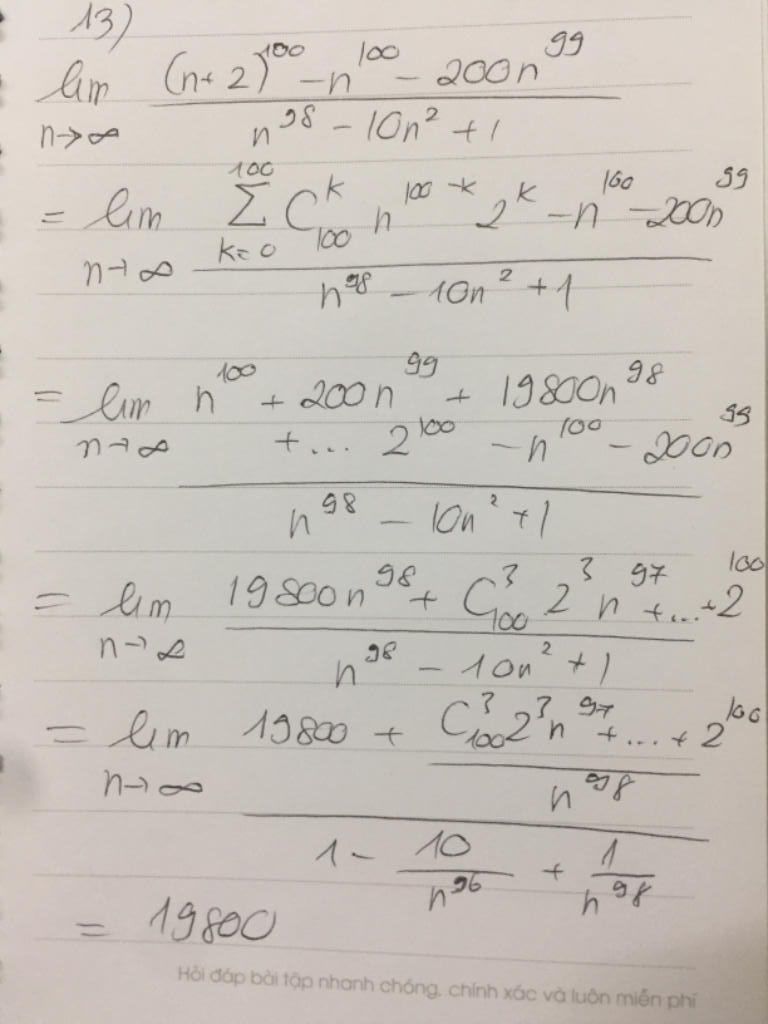 13)
lim n→∞ ((n+2)^100 - n^100 - 200n^99) / (n^98 - 10n^2 + 1)
= lim n→∞ (∑_{k=0}^{100} C_100^k n^{100-k} 2^k - n^100 - 200n^99) / (n^98 - 10n^2 + 1)
= lim n→∞ (n^100 + 200n^99 + 19800n^98
+... 2^100 - n^100 - 200n^99) / (n^98 - 10n^2 + 1)
= lim n→∞ (19800n^98 + C_100^3 2^3 n^97 + ... + 2^100) / (n^98 - 10n^2 + 1)
= lim n→∞ (19800 + (C_100^3 2^3 n^97 + ... + 2^100) / n^98) / (1 - 10/n^96 + 1/n^98)
= 19800
Hỏi đáp bài tập nhanh chóng, chính xác và luôn miễn phí